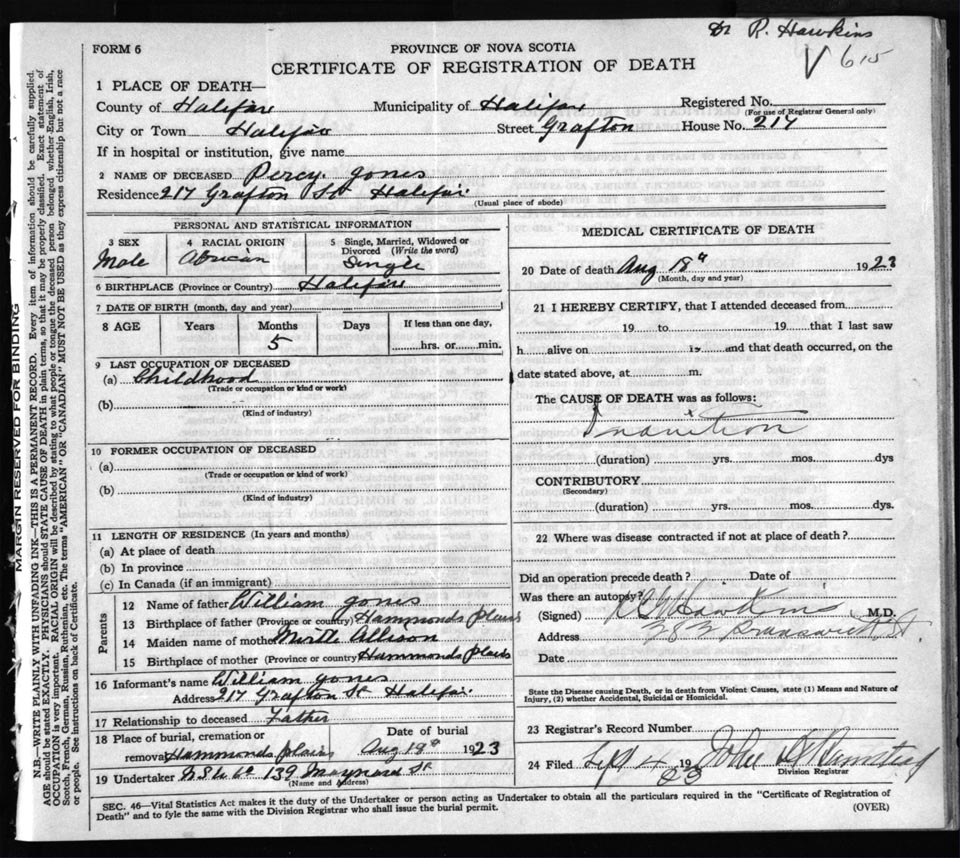 Dr R. Hawkins
V 615
FORM 6
PROVINCE OF NOVA SCOTIA
CERTIFICATE OF REGISTRATION OF DEATH
1 PLACE OF DEATH—
County of Halifax Municipality of Halifax Registered No.
(For use of Registrar General only)
City or Town Halifax Street Grafton House No. 217
If in hospital or institution, give name
2 NAME OF DECEASED Percy Jones
Residence 217 Grafton St Halifax
(Usual place of abode)
PERSONAL AND STATISTICAL INFORMATION
3 SEX Male
4 RACIAL ORIGIN African
5 Single, Married, Widowed or Divorced (Write the word) Single
6 BIRTHPLACE (Province or Country) Halifax
7 DATE OF BIRTH (month, day and year)
8 AGE Years Months 5 Days If less than one day, hrs. or min.
9 LAST OCCUPATION OF DECEASED
(a) Childhood
(Trade or occupation or kind or work)
(b)
(Kind of industry)
10 FORMER OCCUPATION OF DECEASED
(a)
(Trade or occupation or kind of work)
(b)
(Kind of industry)
11 LENGTH OF RESIDENCE (In years and months)
(a) At place of death
(b) In province
(c) In Canada (if an immigrant)
Parents
12 Name of father William Jones
13 Birthplace of father (Province or country) Hammonds Plains
14 Maiden name of mother Allison
15 Birthplace of mother (Province or country) Hammonds Plains
16 Informant's name William Jones
Address 217 Grafton St Halifax
17 Relationship to deceased Father
18 Place of burial, cremation or removal Hammonds Plains
Date of burial Aug 19th 1923
19 Undertaker 139 Maynard St
(Name and Address)
MEDICAL CERTIFICATE OF DEATH
20 Date of death Aug 18th 1923
(Month, day and year)
21 I HEREBY CERTIFY, that I attended deceased from
19 to 19 that I last saw
h alive on 19 and that death occurred, on the
date stated above, at m.
The CAUSE OF DEATH was as follows:
Inanition
(duration) yrs. mos. dys
CONTRIBUTORY
(Secondary)
(duration) yrs. mos. dys.
22 Where was disease contracted if not at place of death?
Did an operation precede death? Date of
Was there an autopsy?
(Signed) Hawkins M.D.
Address Brunswick St.
Date
State the Disease causing Death, or in death from Violent Causes, state (1) Means and Nature of
Injury, (2) whether Accidental, Suicidal or Homicidal.
23 Registrar's Record Number
24 Filed Sept 1923 John
Division Registrar
SEC. 46—Vital Statistics Act makes it the duty of the Undertaker or person acting as Undertaker to obtain all the particulars required in the "Certificate of Registration of
Death" and to fyle the same with the Division Registrar who shall issue the burial permit.
(OVER)
MARGIN RESERVED FOR BINDING
N.B.—WRITE PLAINLY WITH UNFADING INK—THIS IS A PERMANENT RECORD. Every item of information should be carefully supplied.
AGE should be stated EXACTLY. PHYSICIANS should STATE CAUSE OF DEATH in plain terms, so that it may be properly classified. Exact statement of
OCCUPATION is very important. RACIAL ORIGIN will be described by stating to what people or tongue the deceased person belonged whether English, Irish,
Scotch, French, German, Russian, Ruthenian, etc. The terms "AMERICAN" OR "CANADIAN" MUST NOT BE USED as they express citizenship but not a race
or people. See instructions on back of Certificate.